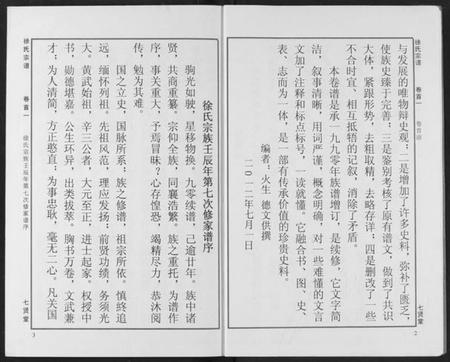 徐氏宗谱
卷首一
卷首语
与发展的唯物辩史观;二是增加了许多史料,弥补了匮乏,
使族史臻于完善;三是鉴别考核了原有谱文,做到了共识
大体,紧跟形势,去粗取精,去略存详;四是删改了一些
不合时宜、相互抵牾的记叙,消除了矛盾。
本卷谱是承一九九零年族谱增订,是续修,它文字简
洁,叙事清晰,用词严谨,概念明确,对一些难懂的文言
文加了注释和标点标号,一读就懂。它融合书、图、史、
表、志而为一体,是一部有传承价值的珍贵史料。
编者:火生 德文供撰
二〇一二年七月一日
七贤堂
2
徐氏宗族壬辰年第七次修家谱序
驹光如驶,星移物换。九零续谱,已逾廿年。族中诸
贤,共商重纂。宗仰全族,同襄浩繁。族之重托,为谱作
序,事关重大,予焉冒昧?心存惶恐,竭精尽力,恭沐阅
传,勉为其难。
国之立史,国脉所系;族之修谱,祖宗所依。慎终追
远,缅怀列祖。先祖风范,理应发扬;前贤功绩,务须光
大。黄武始祖,辛三公者,大元至正,进士起家。权授中
书,勋德堪嘉。公生环异,出类拔萃。胸书万卷,文武兼
才;为人清简,方正憨直。为事忠耿,毫无二心。凡关国
徐氏宗谱
卷首一
徐氏宗族壬辰年第七次修家谱序
七贤堂
3